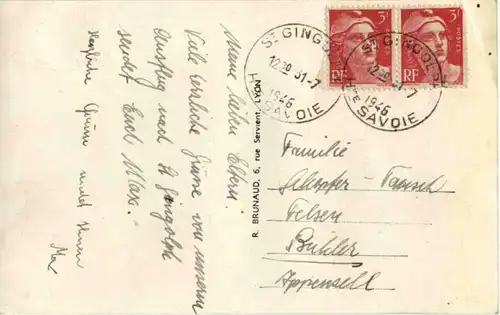 Meine lieben Eltern!
Viele herzliche Grüsse von unserem
Ausflug nach St. Gingolph
sendet Euch Max.
Herzliche Grüsse sendet Ihnen
R. BRUNAUD, 6, rue Servient, LYON
3F
3F
RF
RF
POSTES
ST GINGOLPH
12 30 31-7
1946
HTE SAVOIE
ST GINGOLPH
12 30 31-7
1946
HTE SAVOIE
Familie
Felsen
Bühler
Appenzell